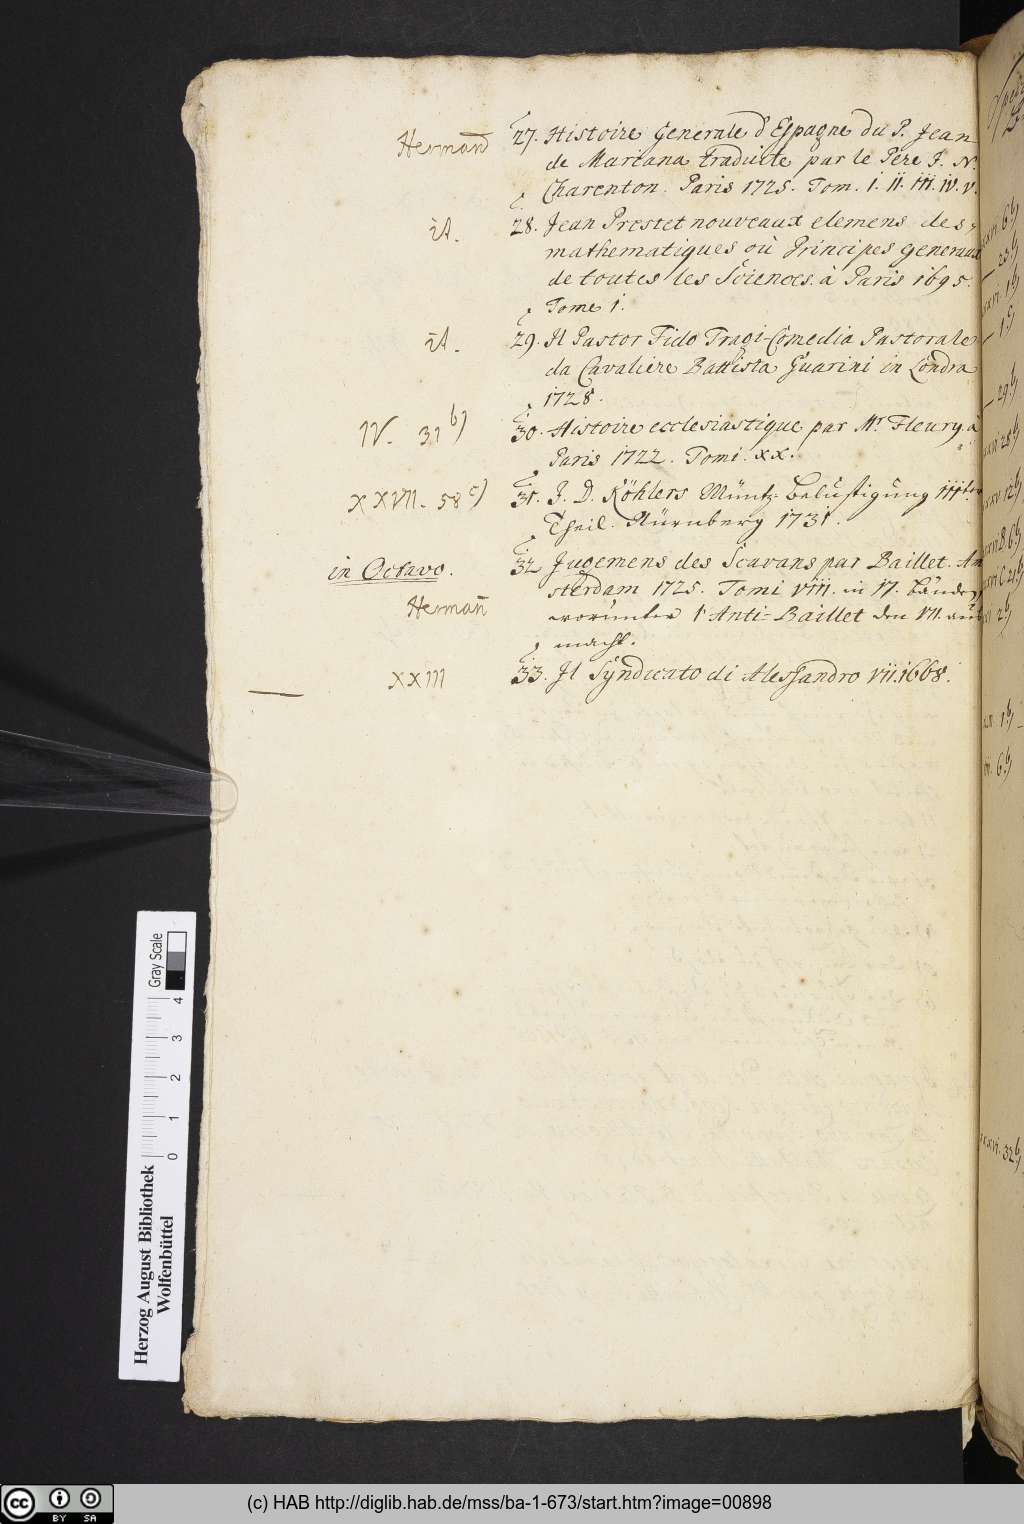 Hermañ 27. Histoire Generale d'Espagne du P. Jean
de Mariana traduite par le Pere J. N.
Charenton. Paris 1725. Tom. I. II. III. IV. V.
it. 28. Jean Prestet nouveaux elemens des
mathematiques où Principes generaux
de toutes les Sciences. à Paris 1695.
Tome 1.
it. 29. Il Pastor Fido Tragi-Comedia Pastorale
da Cavaliere Battista Guarini in Londra
1728.
IV. 31 b) 30. Histoire ecclesiastique par Mr. Fleury. à
Paris 1722. Tomi. xx.
XXVII. 58 c) 31. J. D. Köhlers Müntz-Belustigung IIIter
Theil. Nürnberg 1731.
in Octavo. 32. Jugemens des Scavans par Baillet. Am
Hermañ sterdam 1725. Tomi VIII. in VI. Bänden
worunter l'Anti-Baillet den VII. aus
macht.
XXIII 33. Il Syndicato di Alessandro VII. 1668.
Herzog August Bibliothek
Wolfenbüttel
0 1 2 3 4
Gray Scale
BY SA
(c) HAB http://diglib.hab.de/mss/ba-1-673/start.htm?image=00898